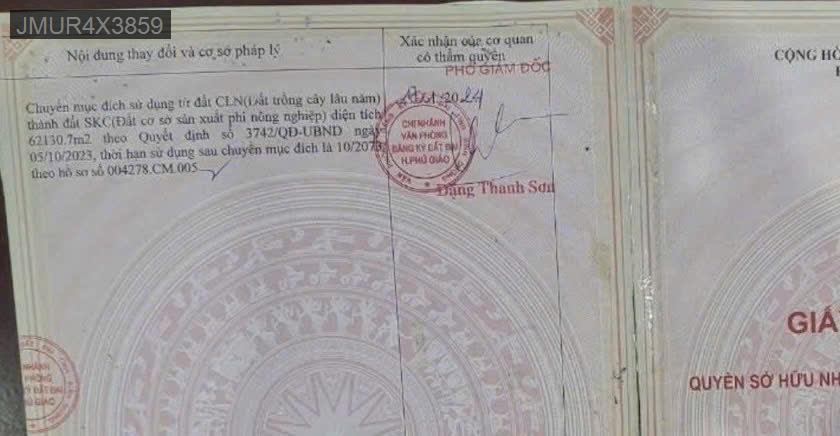 JMUR4X3859
Nội dung thay đổi và cơ sở pháp lý
Xác nhận của cơ quan
có thẩm quyền
PHÓ GIÁM ĐỐC
Chuyển mục đích sử dụng từ đất CLN(Đất trồng cây lâu năm)
thành đất SKC(Đất cơ sở sản xuất phi nông nghiệp) diện tích
62130.7m2 theo Quyết định số 3742/QĐ-UBND ngày
05/10/2023, thời hạn sử dụng sau chuyển mục đích là 10/2073
theo hồ sơ số 004278.CM.005
2024
CHI NHÁNH
VĂN PHÒNG
ĐĂNG KÝ ĐẤT ĐAI
H.PHÚ GIÁO
Đặng Thanh Sơn
NHÁNH
PHÒNG
KÝ ĐẤT ĐAI
PHÚ GIÁO
CỘNG HÒ
GIẤ
QUYỀN SỞ HỮU NH